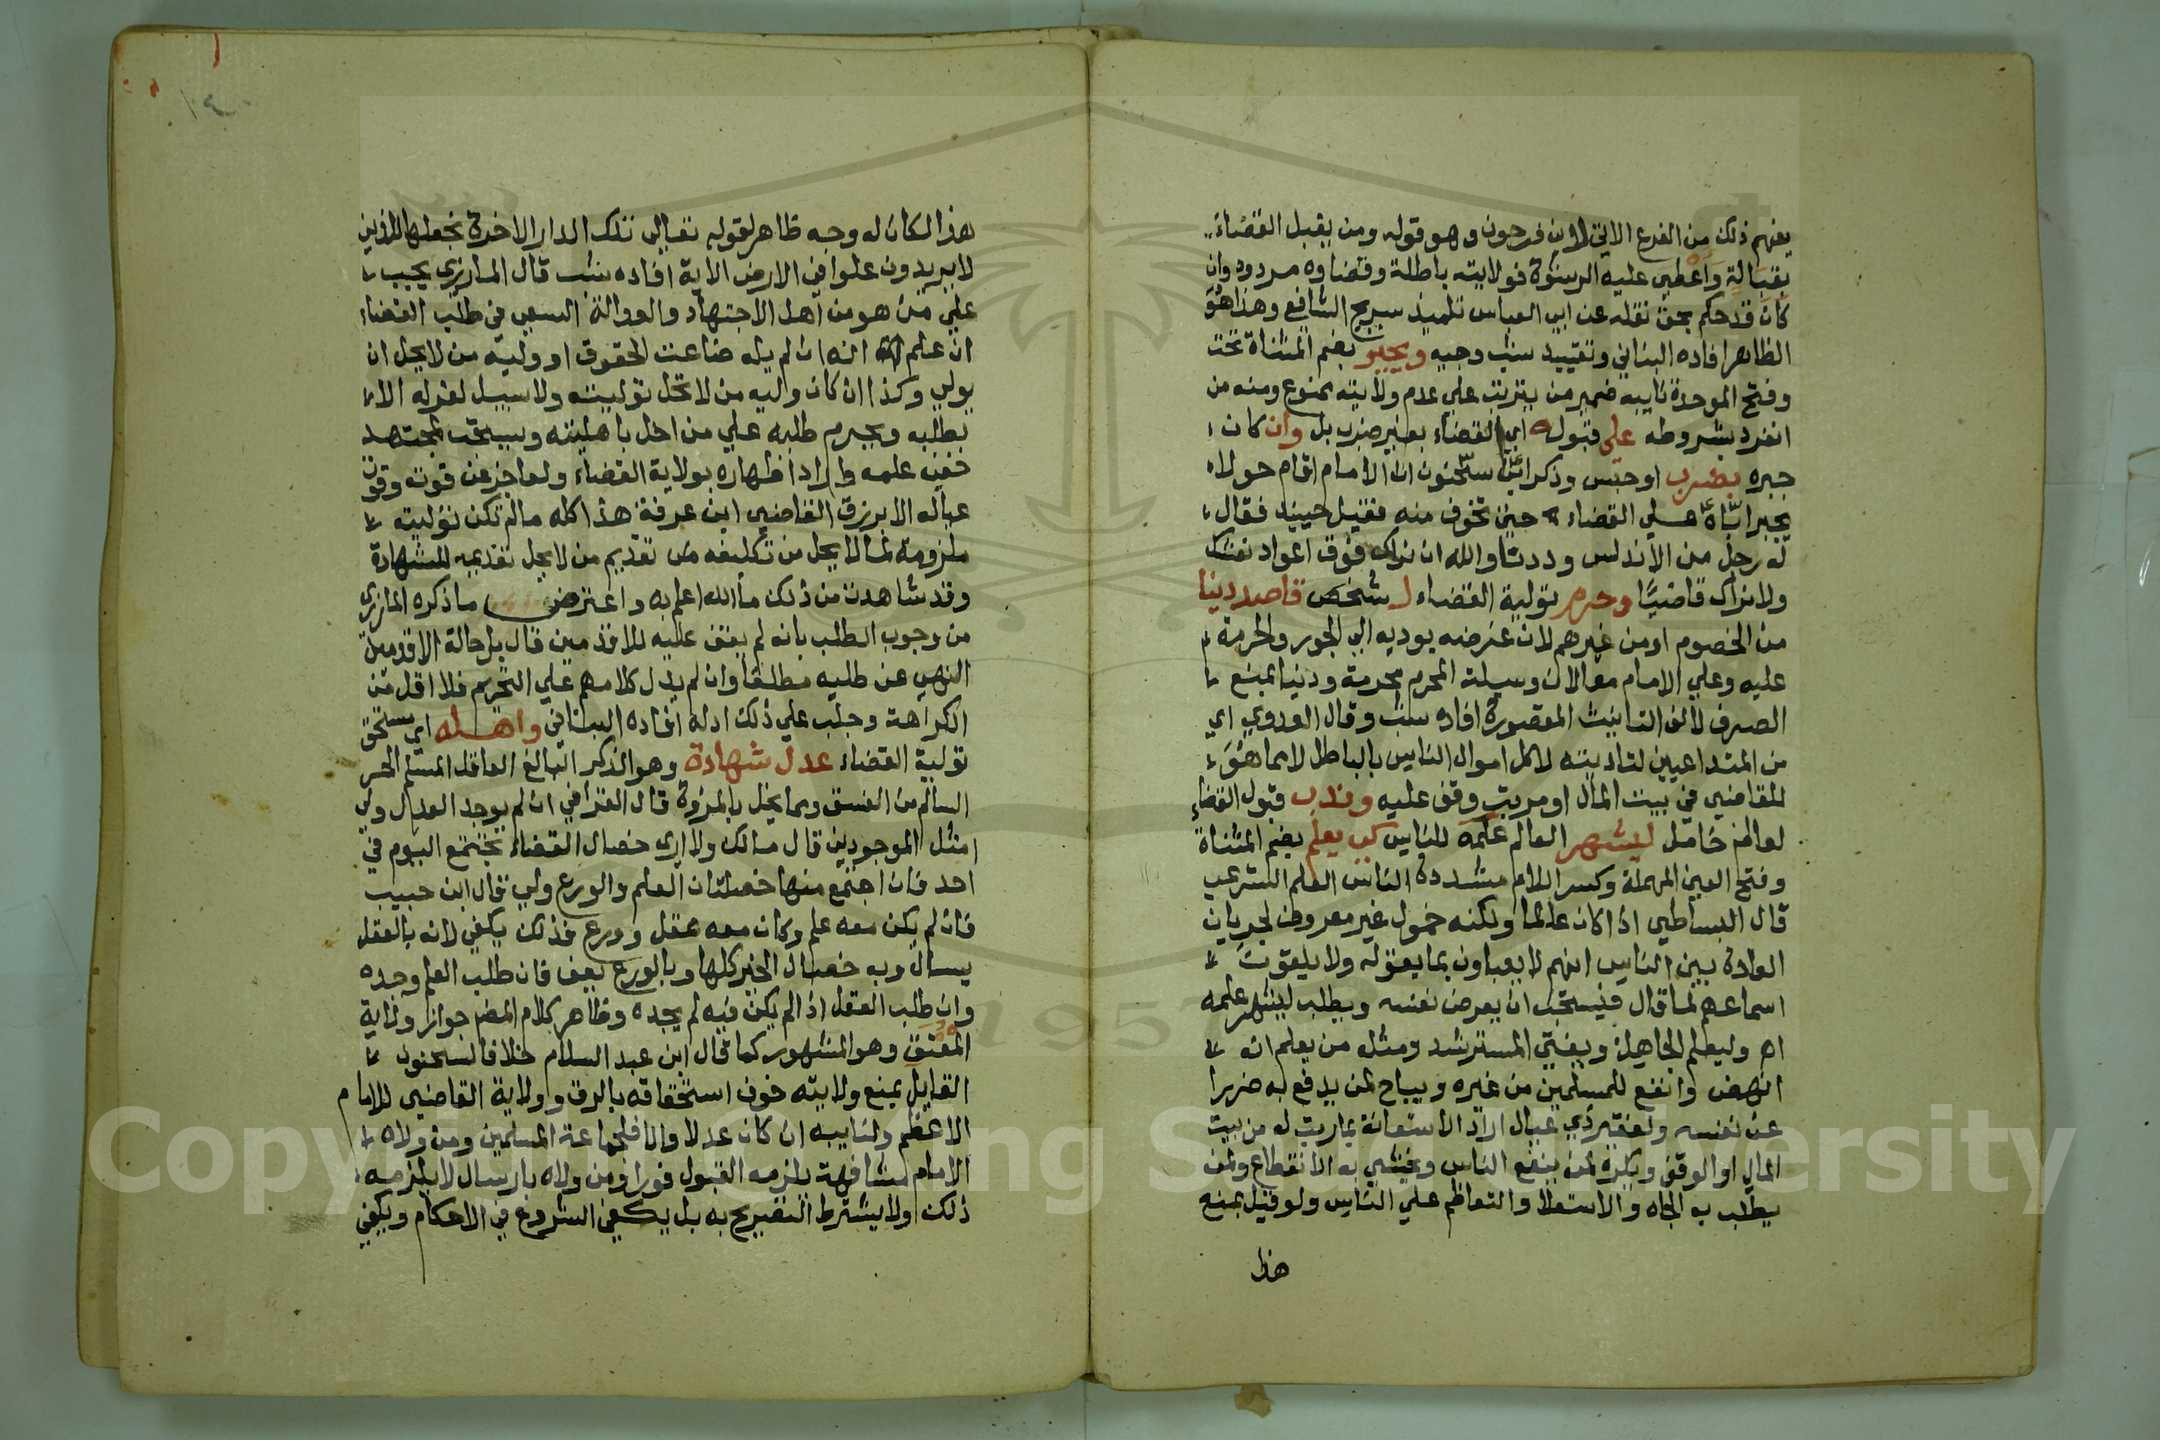 يفهم ذلك من الفرع الاتي لابن فرحون وهو قوله ومن يقبل القضاء
بقبالة واعطي عليه الرشوة فولايته باطلة وقضاوه مردود وان
كان قد حكم بحق نقله عن ابي العباس تلميذ سريج الشافعي وهذا هو
الظاهر افاده البناني وتقييد شب وجيه ويجبر بضم المثناة تحت
وفتح الموحدة نايبه ضمير من يترتب علي عدم ولايته ممنوع ومنه من
انفرد بشروطه على قبوله اي القضاء بغير ضرب بل وان كان
جبره بضرب او حبس وذكر ابن سحنون ان الامام اقام حولا
يجبر اباه علي القضاء حتي تخوف منه فقيل حينيذ فقال
له رجل من الاندلس وددنا والله ان نراك فوق اعواد نعشك
ولا نراك قاضيا وحرم تولية القضاء ل شخص قاصد دنيا
من الخصوم او من غيرهم لان غرضه يوديه الي الجور والحرمة
عليه وعلي الامام معا لان وسيلة المحرم محرمة ودنيا بمنع
الصرف لالف التانيث المقصورة افاده شب وقال العدوي اي
من المتداعيين لتاديته لاكل اموال الناس بالباطل لا مما هو
للقاضي في بيت المال او مرتب وقف عليه وندب قبول القضاء
لعالم خامل ليشهر العالم علمه للناس كي يعلم بضم المثناة
وفتح العين المهملة وكسر اللام مشددة الناس العلم الشرعي
قال البساطي اذا كان عالما ولكنه خمول غير معروف لجريان
العادة بين الناس انهم لا يعباون بما يقوله ولا يلقون
اسماعهم لما قال فيستحب ان يعرض نفسه ويطلب ليشهر علمه
اه وليعلم الجاهل ويفتي المسترشد ومثله من يعلم انه
انهض وانفع للمسلمين من غيره ويباح لمن يدفع به ضررا
عن نفسه ولفقير ذي عيال اراد الاستعانة بما رتب له من بيت
المال او الوقف ويكره لمن ينفع الناس ويخشي به الانقطاع ولمن
يطلب به الجاه والاستعلا والتعاظم علي الناس ولو قيل بمنع
هذا
هذا لكان له وجه ظاهر لقوله تعالي تلك الدار الاخرة نجعلها للذين
لا يريدون علوا في الارض الاية افاده شب قال المازري يجب
علي من هو من اهل الاجتهاد والعدالة السعي في طلب القضاء
ان علم انه ان لم يله ضاعت الحقوق او وليه من لا يحل ان
يولي وكذا ان كان وليه من لا تحل توليته ولا سبيل لعزله الا
بطلبه ويحرم طلبه علي من اخل باهليته ويستحب لمجتهد
خفي علمه واراد اظهاره بولاية القضاء ولعاجز عن قوت وقوت
عياله الا برزق القاضي ابن عرفة هذا كله ما لم تكن توليته
ملزومة لما لا يحل من تكليفه من تقديم من لا يحل تقديمه للشهادة
وقد شاهدت من ذلك ما الله اعلم به واعترض ما ذكره المازري
من وجوب الطلب بانه لم يقف عليه للاقدمين قال بل حالة الاقدمين
النهي عن طلبه مطلقا وان لم يدل كلامهم علي التحريم فلا اقل من
الكراهة وجلب علي ذلك ادلة افاده البناني واهله اي مستحق
تولية القضاء عدل شهادة وهو الذكر البالغ العاقل المسلم الحر
السالم من الفسق ومما يخل بالمروة قال القرافي ان لم يوجد العدل ولي
امثل الموجودين قال مالك ولا اري خصال القضاء تجتمع اليوم في
احد فان اجتمع منها خصلتان العلم والورع ولي قال ابن حبيب
فان لم يكن معه علم وكان معه عقل وورع فذلك يكفي لانه بالعقل
يسال وبه خصال الخير كلها وبالورع يعف فان طلب العلم وجده
وان طلب العقل اذا لم يكن فيه لم يجده وظاهر كلام المص جواز ولاية
المعتق وهو المشهور كما قال ابن عبد السلام خلافا لسحنون
القايل بمنع ولايته خوف استحقاقه بالرق وولاية القاضي للامام
الاعظم ولنايبه ان كان عدلا والا فلجماعة المسلمين ومن ولاه
الامام مشافهة يلزمه القبول فورا ومن ولاه بارسال لا يلزمه
ذلك ولا يشترط التصريح به بل يكفي الشروع في الاحكام ويكفي